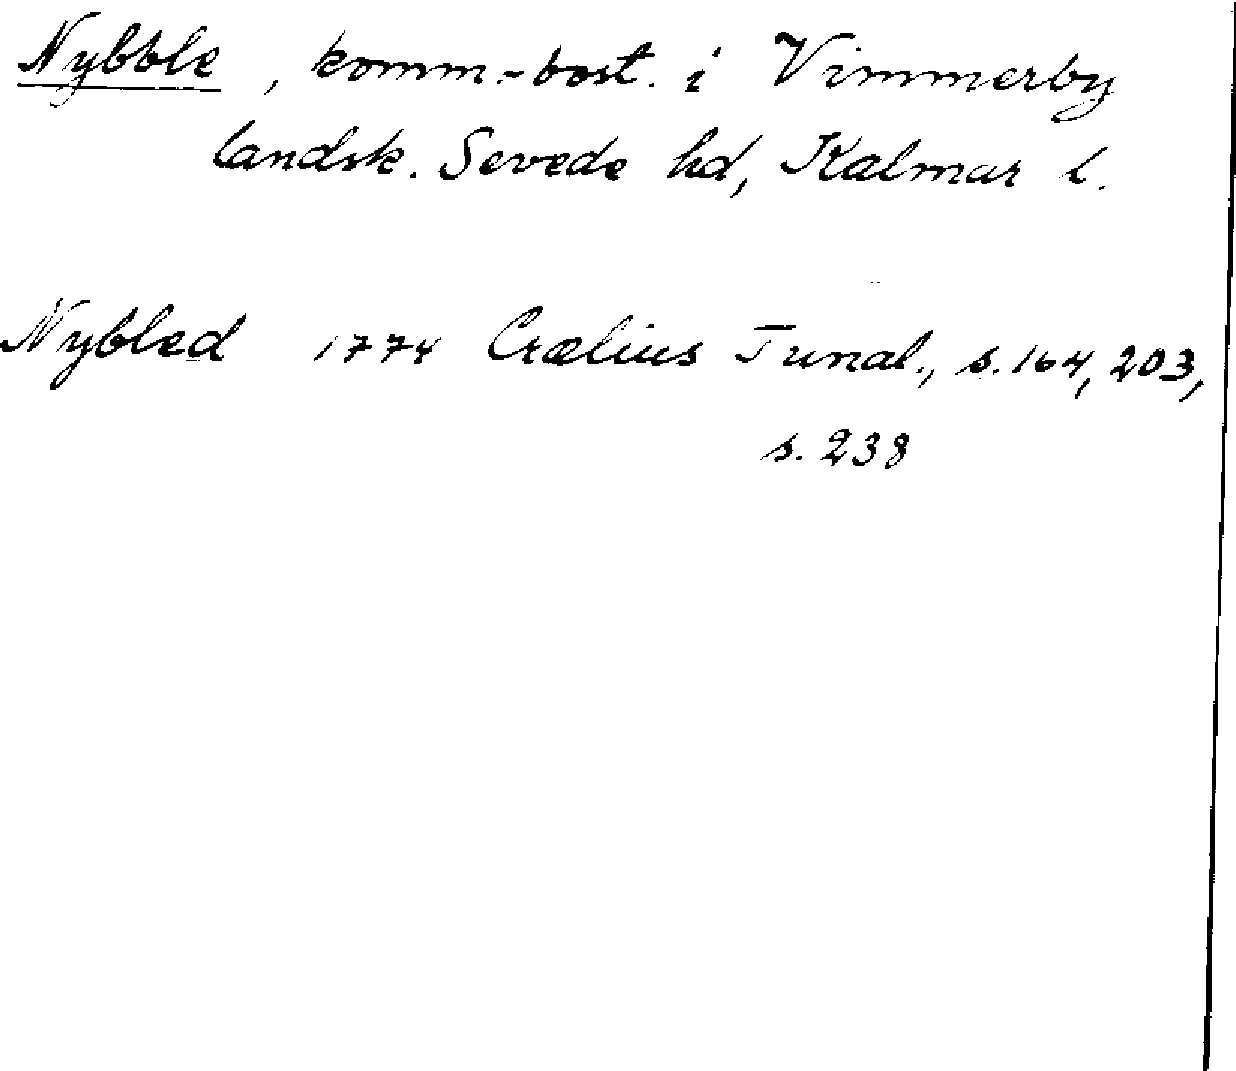 Nybble, komm.-bost. i Vimmerby
landsk. Sevede hd, Kalmar l.
Nybled 1774 Crælius Tunal., s. 164, 203,
s. 238